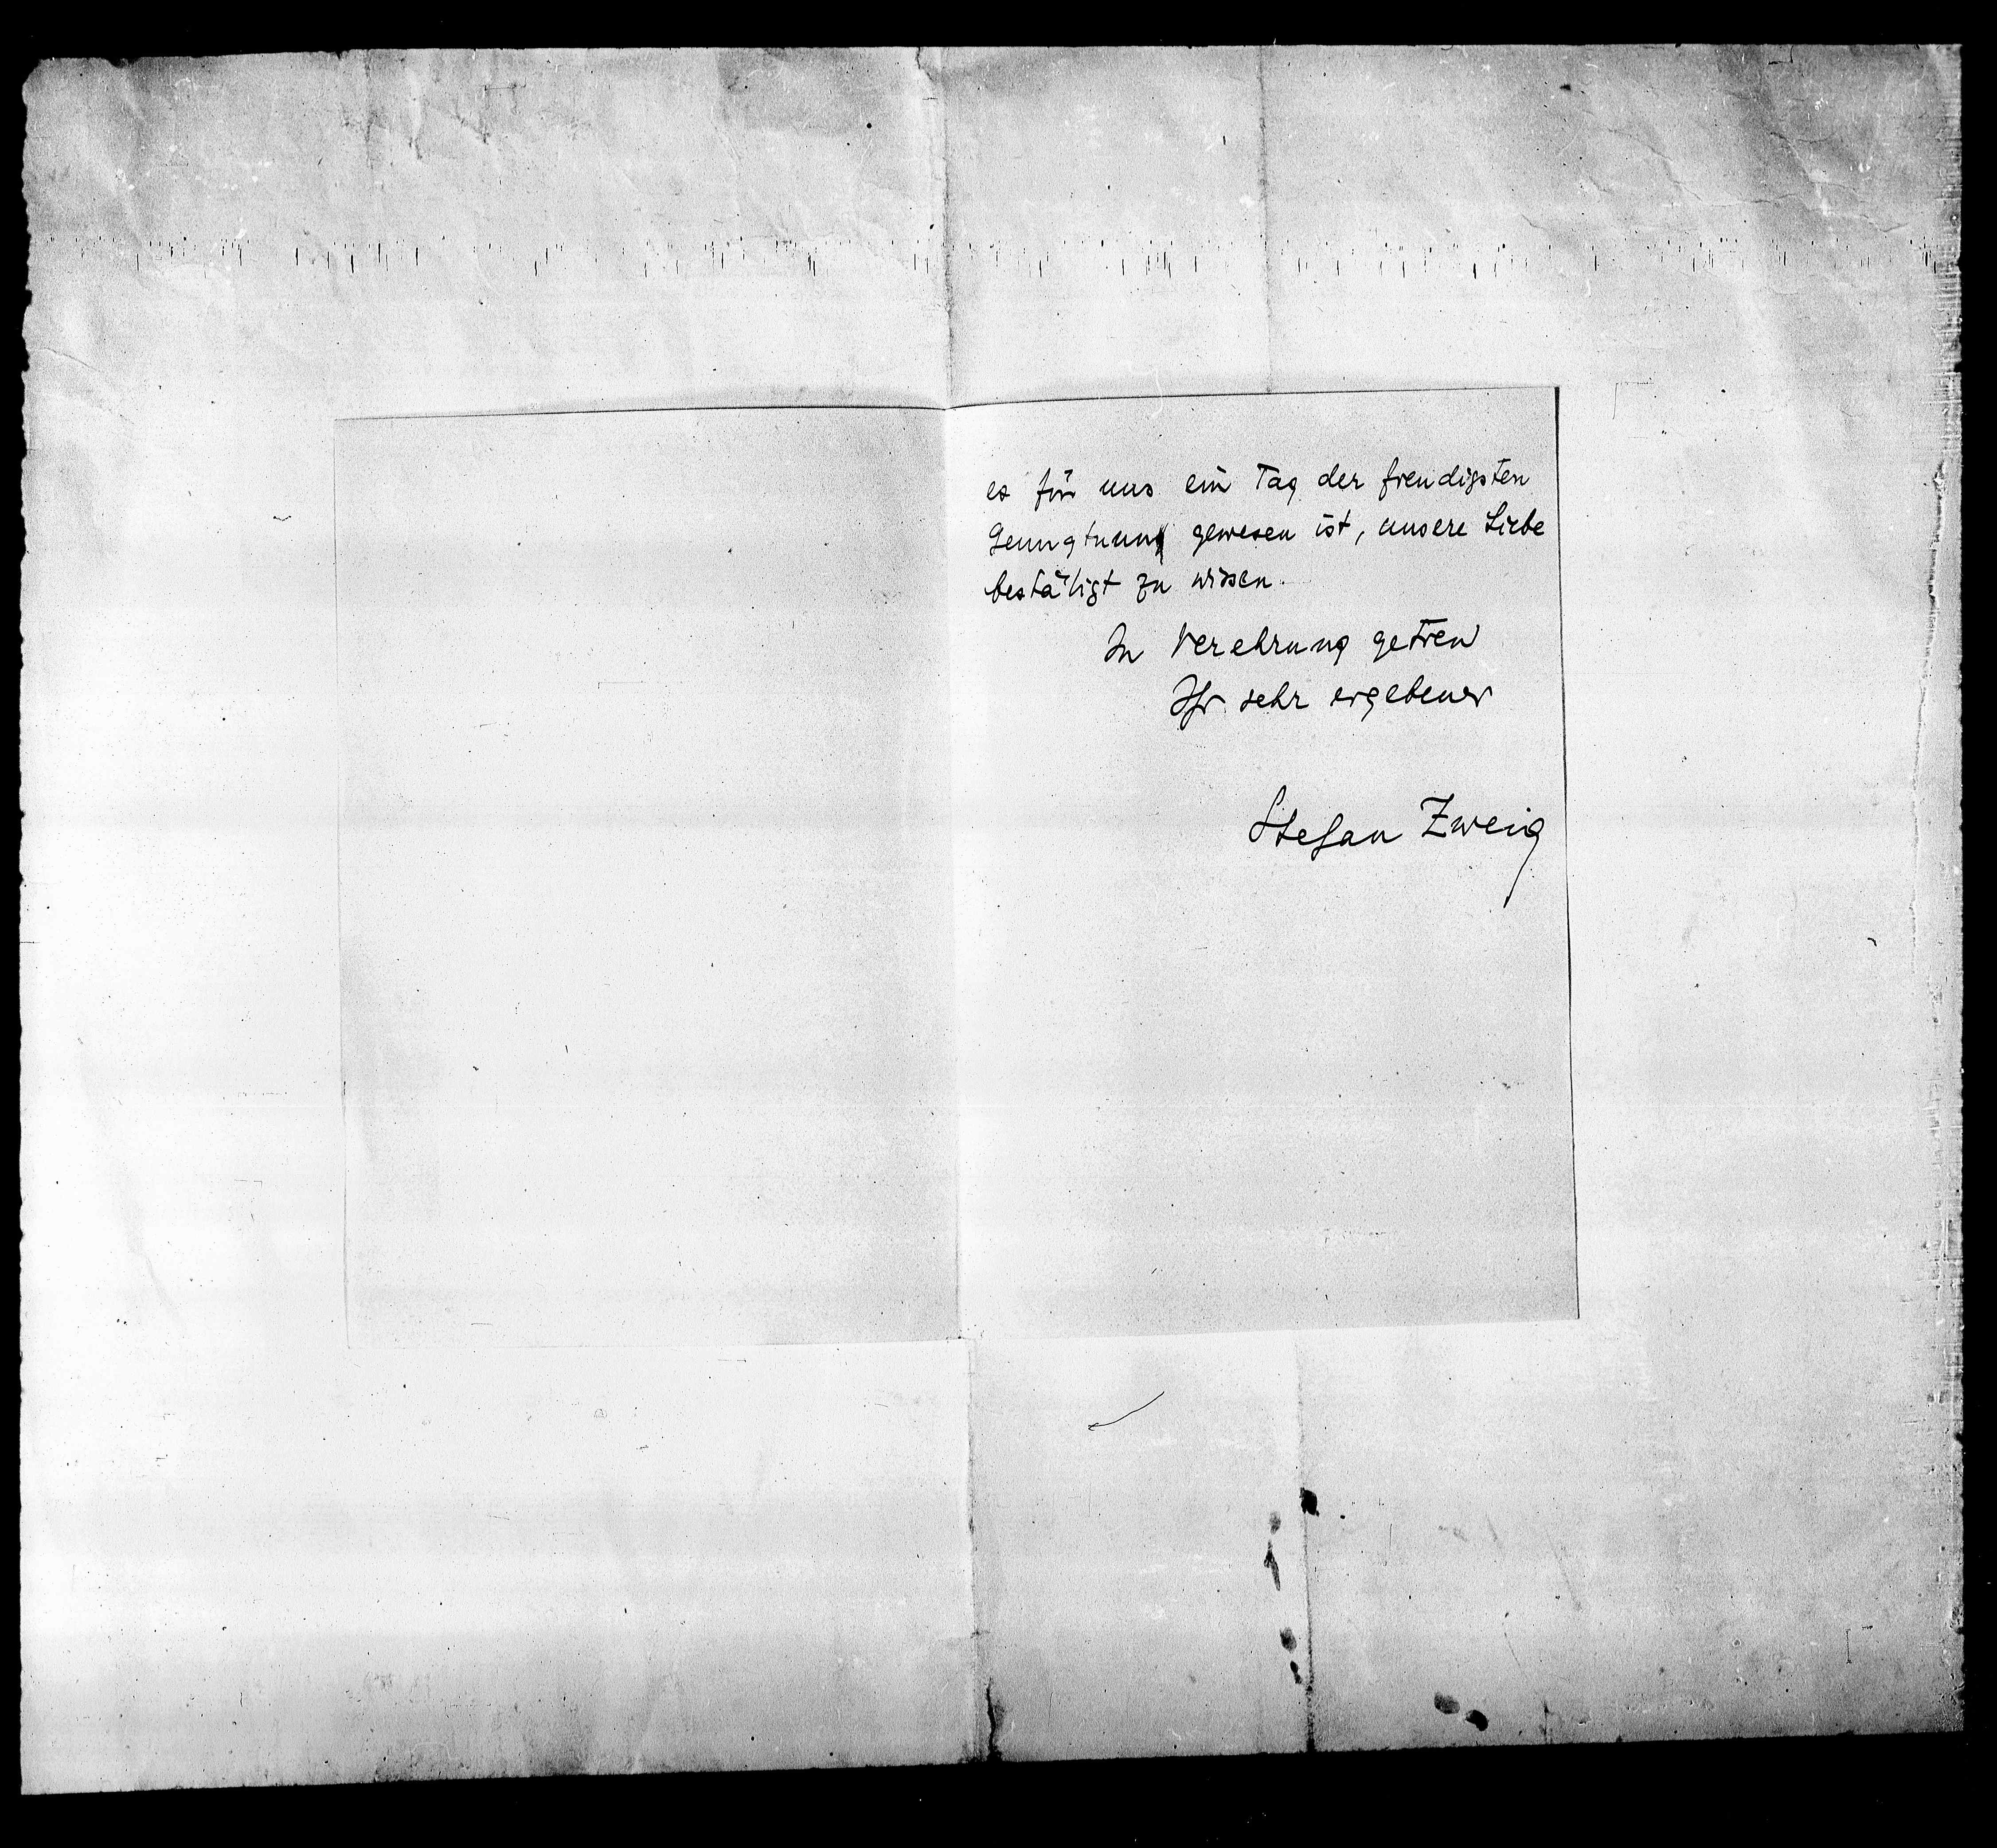 es für uns ein Tag der freudigsten
Genugtuung gewesen ist, unsere Liebe
bestätigt zu wissen.
In Verehrung getreu
Ihr sehr ergebener
Stefan Zweig